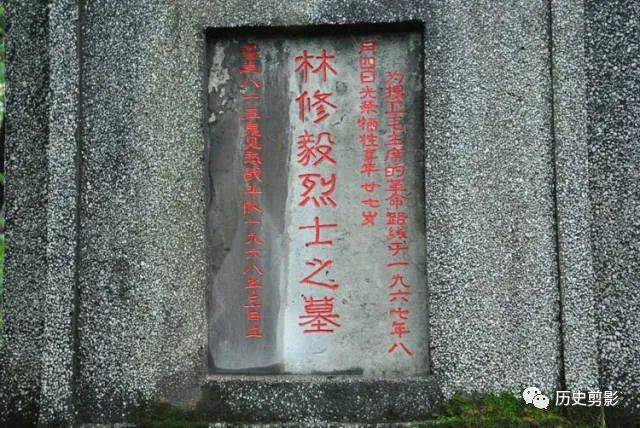 为捍卫毛主席的革命路线于一九六七年八
月四日光荣牺牲享年廿七岁
林修毅烈士之墓
八一五 战斗队一九六八年三月立
历史剪影